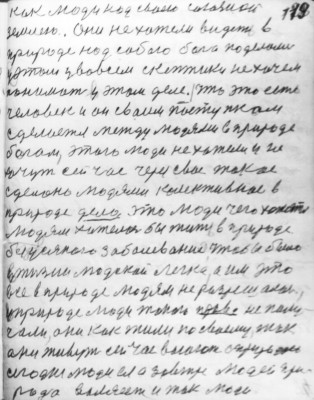 119
как люди над своею головной
землею. Они не хотели видеть в
природе над собою бога поделом
этом и вовсем скептики не хочем
понимать в этом деле, что это есть
человек и он своим поступком
сделается между людями в природе
богом, этого люди не хотели и не
хочут сейчас через свое такое
сделано людями колективное в
природе дело. Это люди чего хотят
людям хотелось бы жить в природе
без всякого заболевание чтобы было
в жизни людской легко, а им это
все в природе людям не разрешалось.
в природе люди такого право не полу-
чали, они как жили по своему так
они живут сейчас
сегодня люди а завтра людей при-
рода валяет и так люди